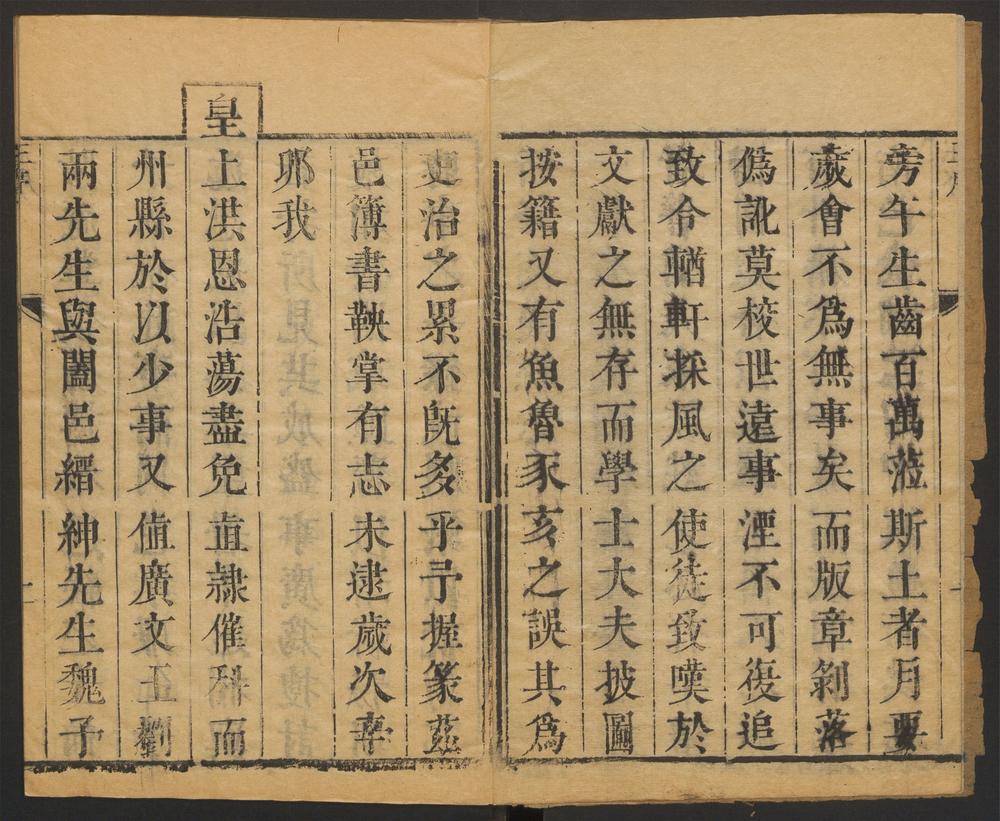 旁午生齒百萬蒞斯土者月要
歲會不爲無事矣而版章剝落
僞訛莫校世遠事湮不可復追
致令輶軒採風之使徒致嘆於
文獻之無存而學士大夫披圖
按籍又有魚魯豕亥之誤其爲
吏治之累不旣多乎予握篆茲
邑簿書鞅掌有志未逮歲次辛
邜我
皇
上洪恩浩蕩盡免直隷催科而
州縣於以少事又值廣文王劉
兩先生與闔邑縉紳先生魏子